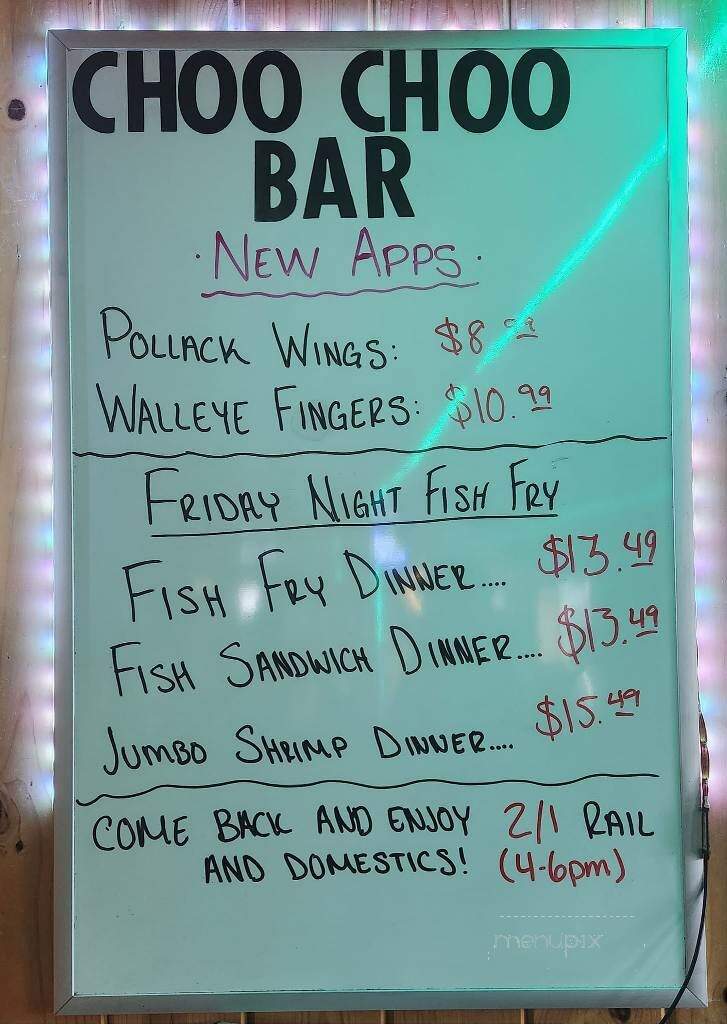 CHOO CHOO
BAR
· NEW APPS ·
POLLACK WINGS: $8.99
WALLEYE FINGERS: $10.99
FRIDAY NIGHT FISH FRY
FISH FRY DINNER.... $13.49
FISH SANDWICH DINNER.... $13.49
JUMBO SHRIMP DINNER.... $15.49
COME BACK AND ENJOY 2/1 RAIL
AND DOMESTICS! (4-6pm)
menupix